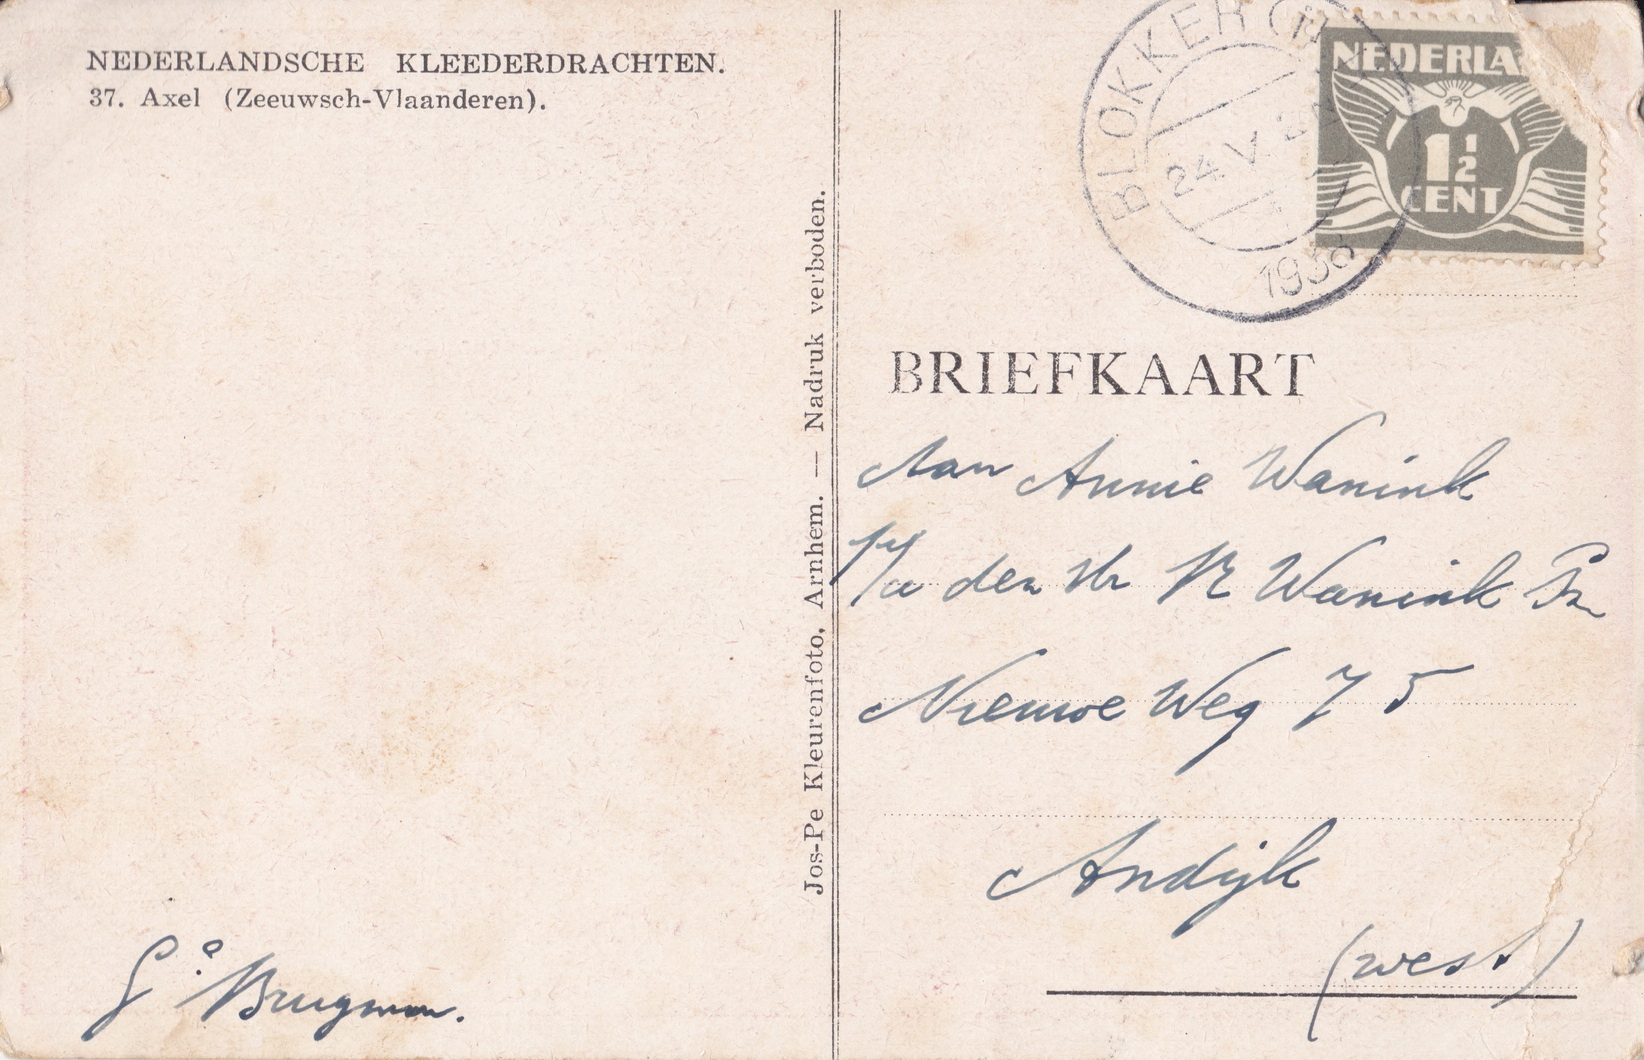 NEDERLANDSCHE KLEEDERDRACHTEN.
37. Axel (Zeeuwsch-Vlaanderen).
Gº Brugman.
Jos-Pe Kleurenfoto, Arnhem. — Nadruk verboden.
BLOKKER
24.V.
1938
NEDERLA
1½
CENT
BRIEFKAART
Aan Annie Wanink
p/a den Hr R Wanink Pzn
Nieuwe Weg 75
Andijk
(west)